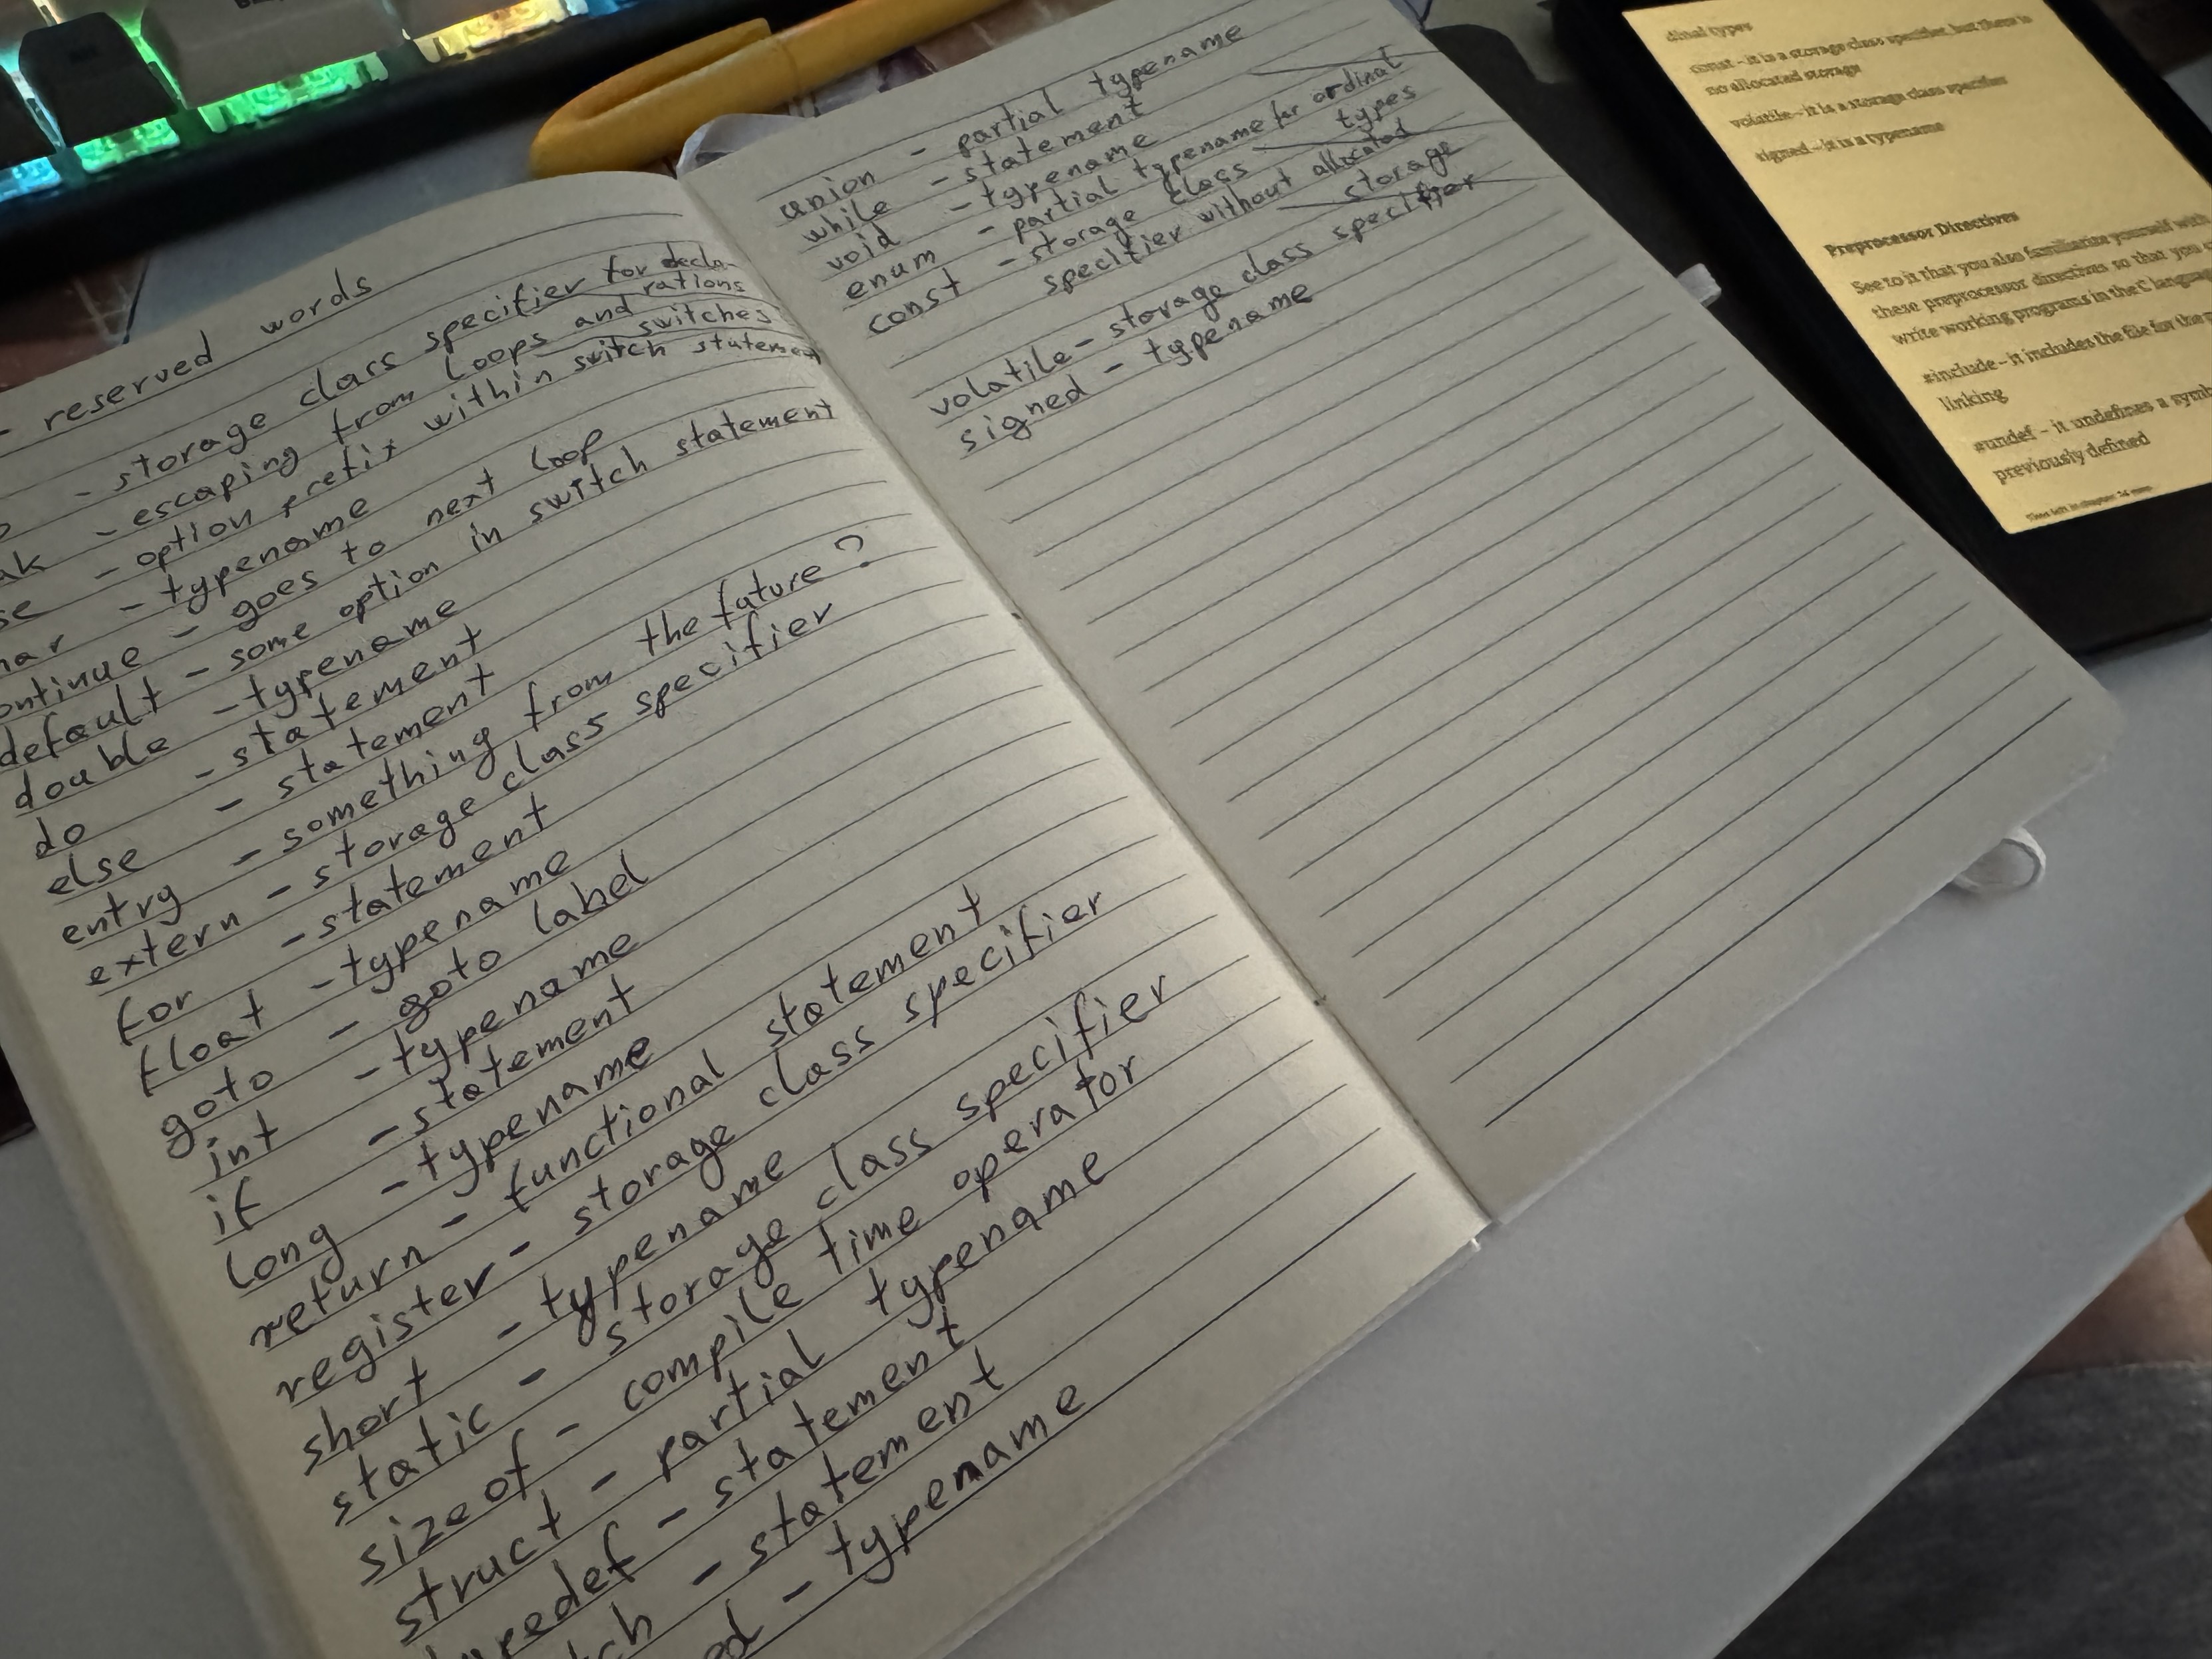 - reserved words
- storage class specifier for decla-
rations
- escaping from loops and
switches
- option prefix within switch statement
- typename
continue - goes to next loop
default - some option in switch statement
double - typename
do - statement
else - statement
entry - something from the future?
extern - storage class specifier
for - statement
float - typename
goto - goto label
int - typename
if - statement
long - typename
return - functional statement
register - storage class specifier
short - typename
static - storage class specifier
sizeof - compile time operator
struct - partial typename
typedef - statement
- statement
- typename
union - partial typename
while - statement
void - typename
enum - partial typename for ordinal
types
const - storage class
specifier without allocated
storage
volatile - storage class specifier
signed - typename
dinal types
const - it is a storage class specifier, but there is
no allocated storage
volatile - it is a storage class specifier
signed - it is a typename
Preprocessor Directives
See to it that you also familiarize yourself with
these preprocessor directives so that you
write working programs in the C language
#include - it includes the file for the
linking
#undef - it undefines a symb
previously defined